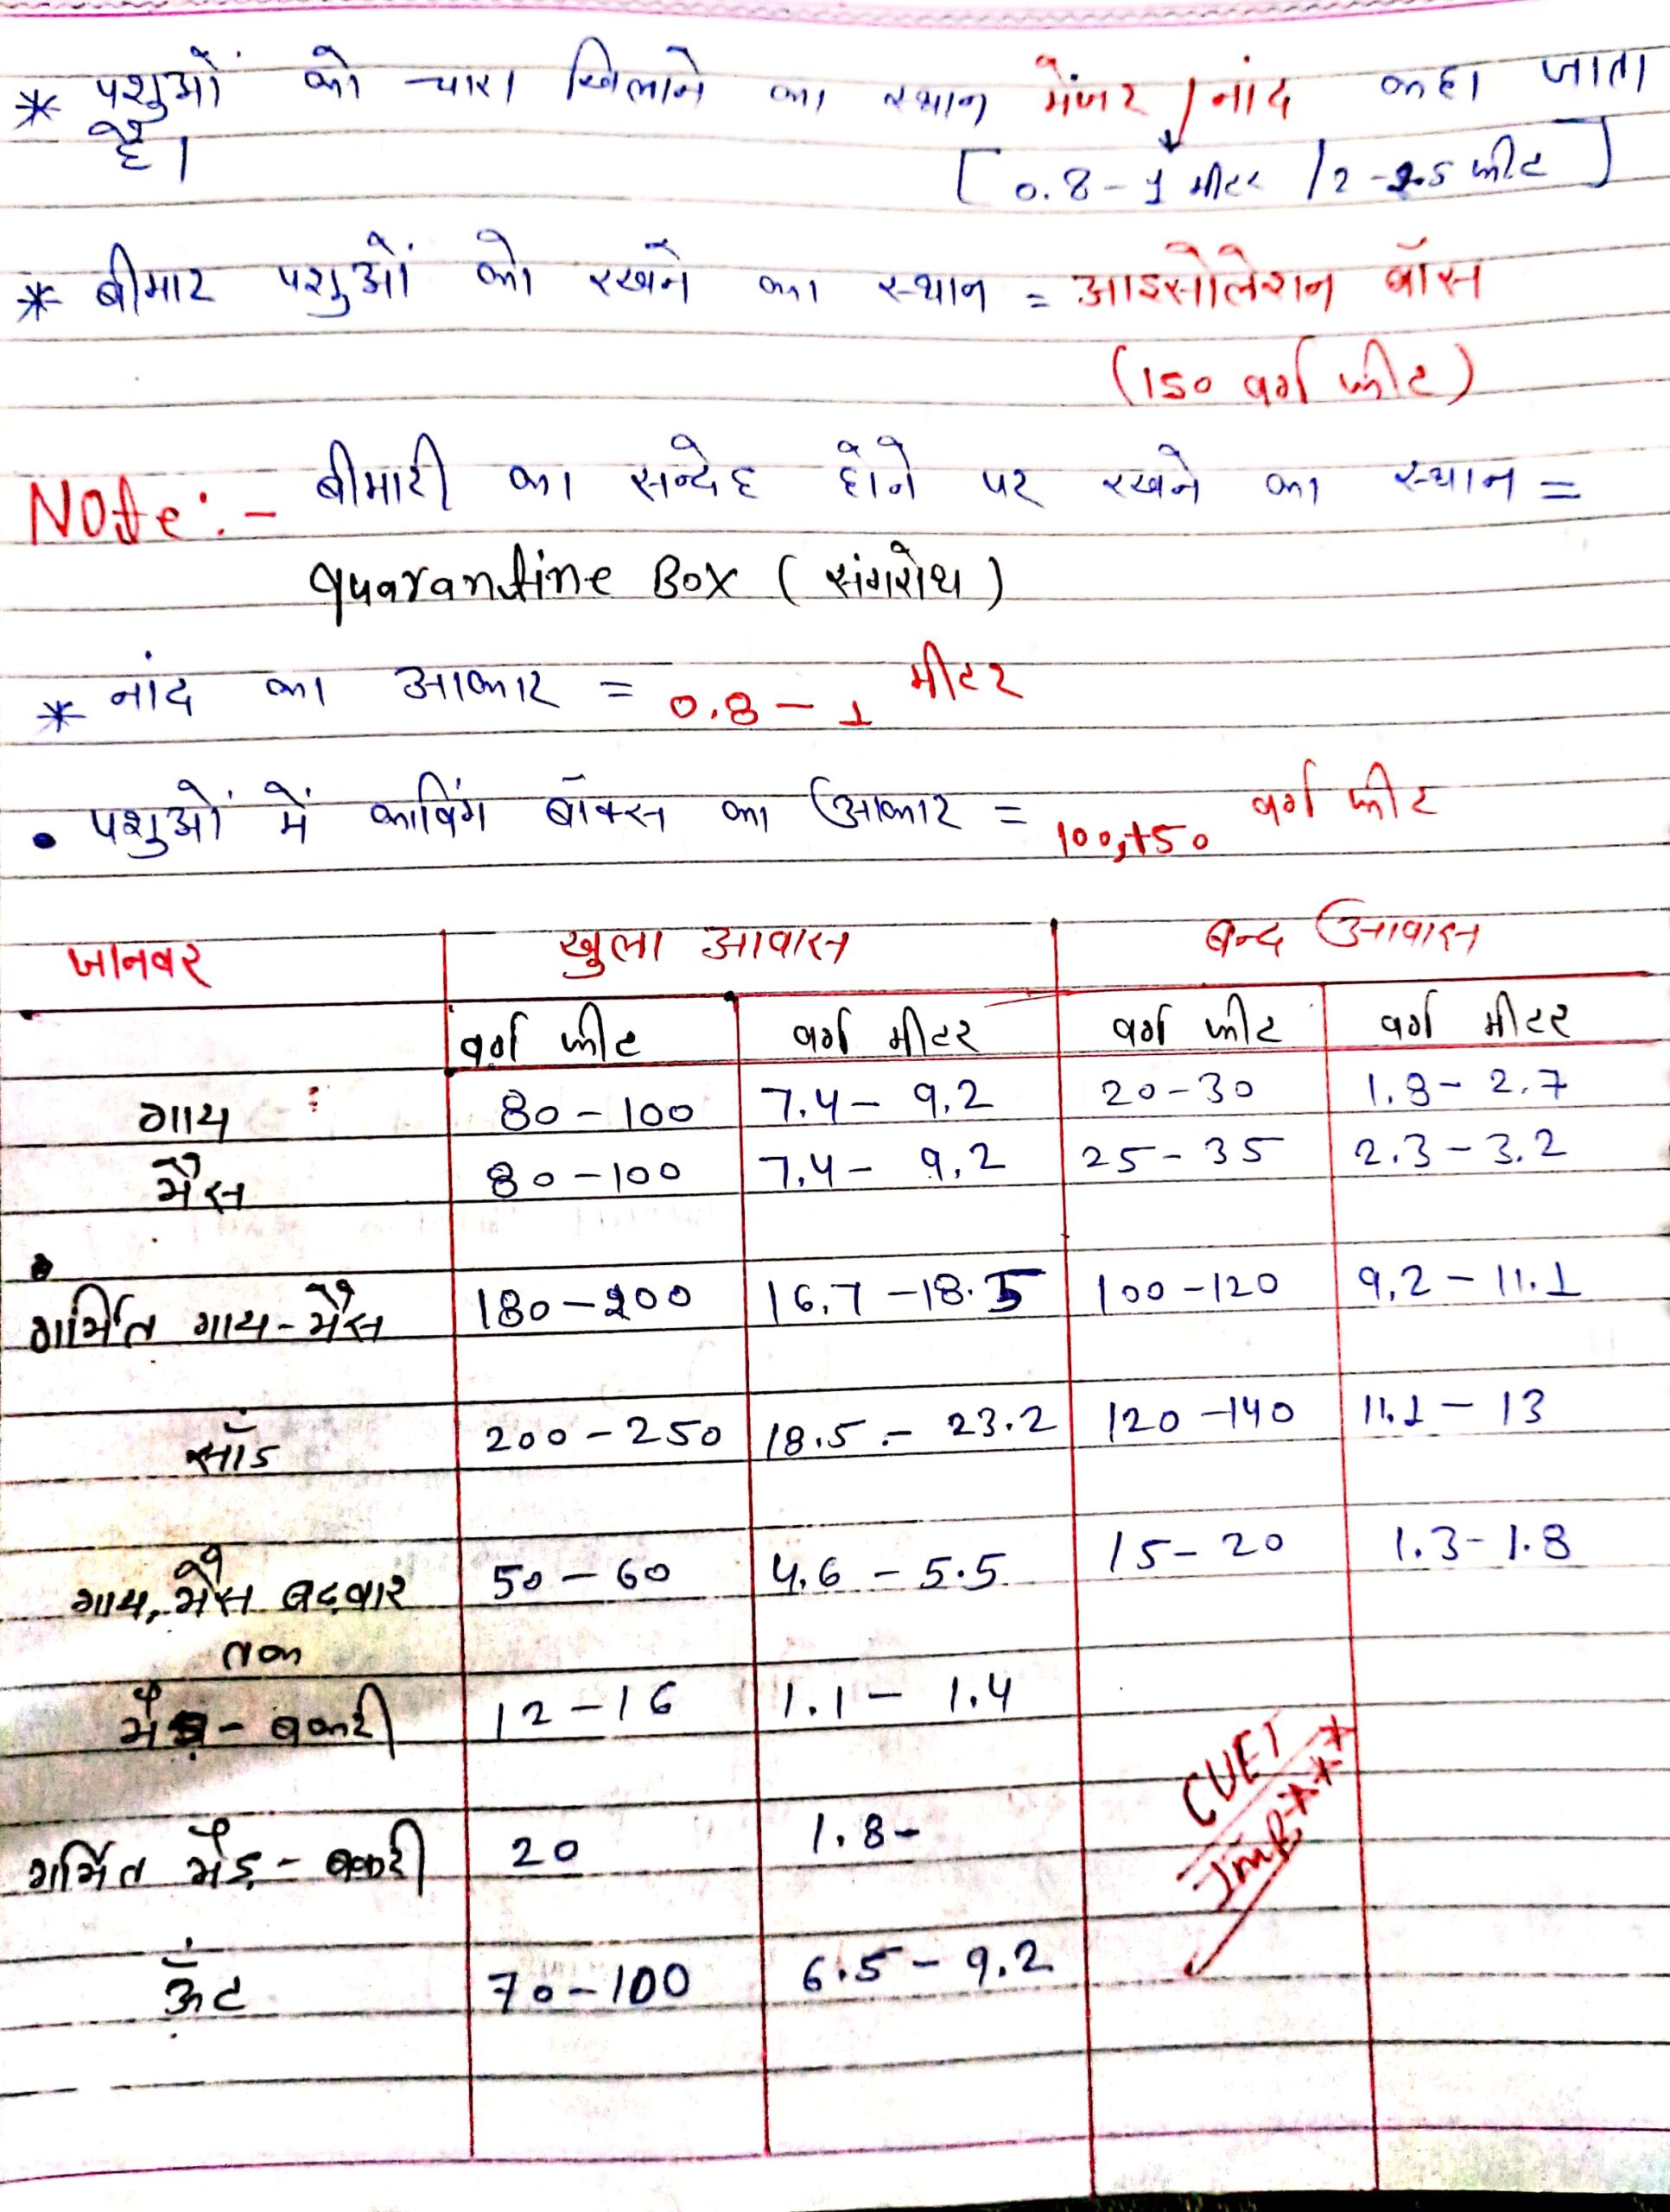 * पशुओं को चारा खिलाने का स्थान मेंजर / नांद कहा जाता
है।
[0.8 - 1 मीटर / 2 - 2.5 फीट]
* बीमार पशुओं को रखने का स्थान = आइसोलेशन बॉस
(150 वर्ग फीट)
Note:- बीमारी का सन्देह होंने पर रखने का स्थान =
quarantine Box (संगरोध)
* नांद का आकार = 0.8 - 1 मीटर
• पशुओं में काविंग बॉक्स का आकार = 100, 150 वर्ग फीट
जानवर खुला आवास बन्द आवास
वर्ग फीट वर्ग मीटर वर्ग फीट वर्ग मीटर
गाय 80 - 100 7.4 - 9.2 20 - 30 1.8 - 2.7
भैंस 80 - 100 7.4 - 9.2 25 - 35 2.3 - 3.2
गर्भित गाय - भैंस 180 - 200 16.7 - 18.5 100 - 120 9.2 - 11.1
सॉड 200 - 250 18.5 - 23.2 120 - 140 11.1 - 13
गाय, भैंस बढ़वार 50 - 60 4.6 - 5.5 15 - 20 1.3 - 1.8
तक
भैड़ - बकरी 12 - 16 1.1 - 1.4
CUET
Imp. ***
गर्भित भैड़ - बकरी 20 1.8 -
ऊँट 70 - 100 6.5 - 9.2